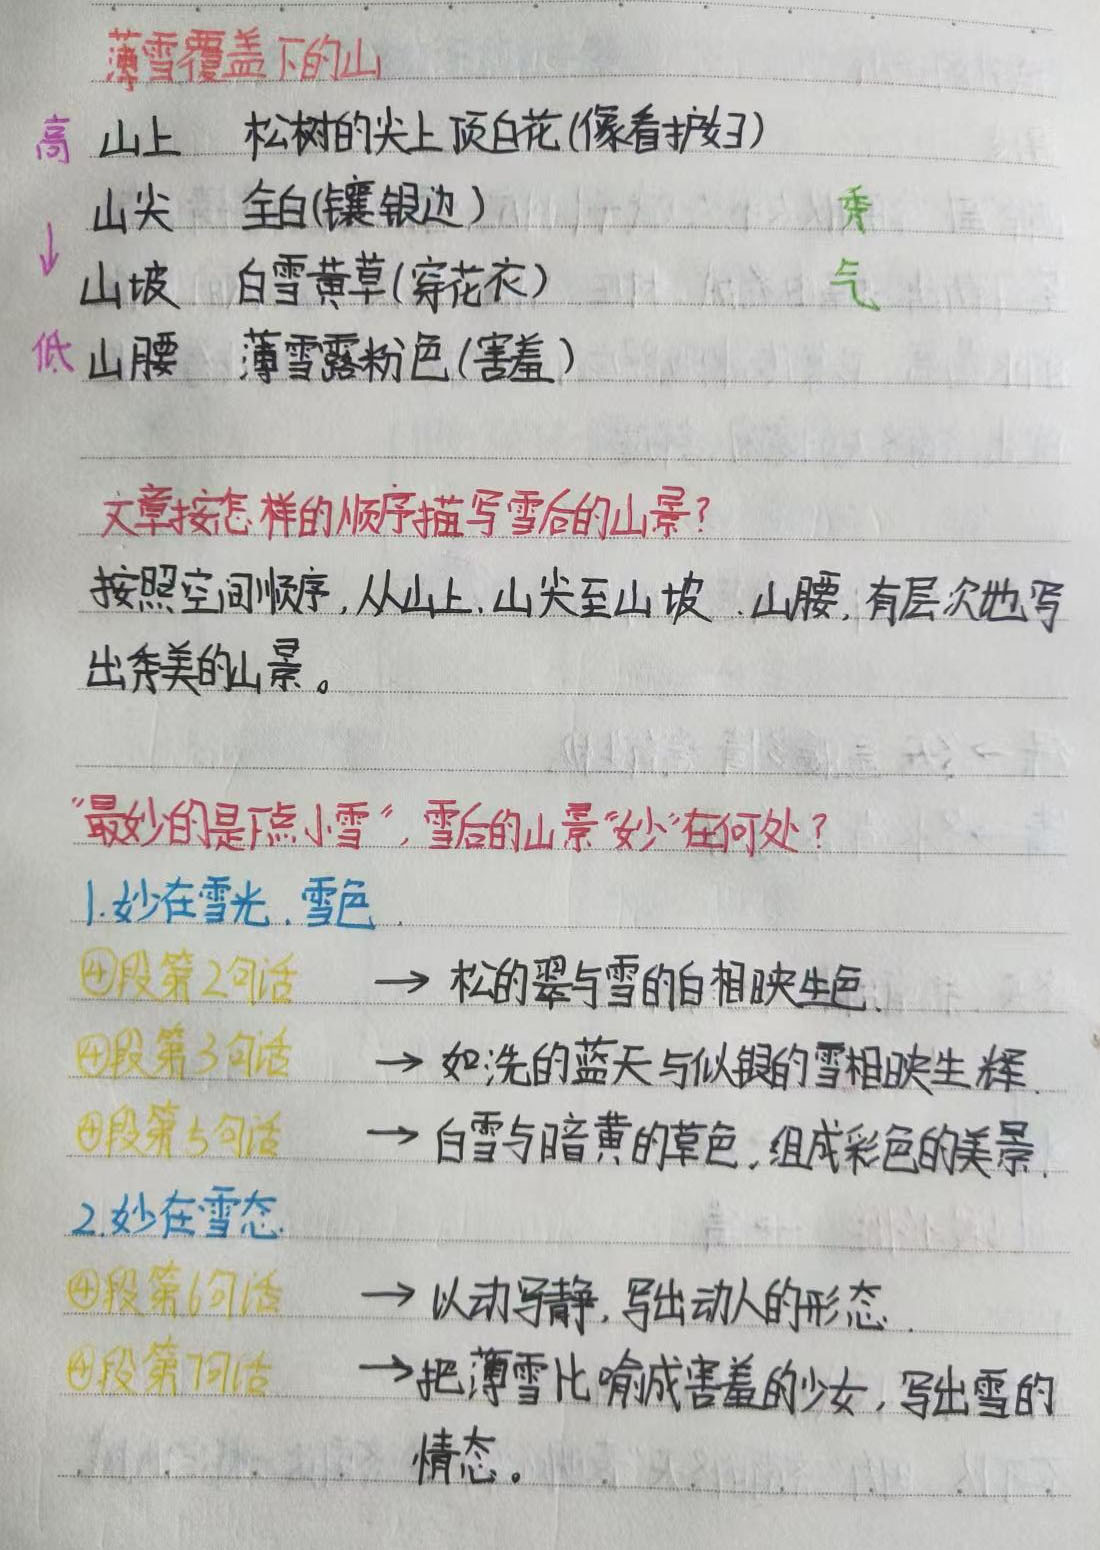 薄雪覆盖下的山
高 山上 松树的尖上顶白花(像看护妇)
山尖 全白(镶银边) 秀
↓ 山坡 白雪黄草(穿花衣) 气
低 山腰 薄雪露粉色(害羞)
文章按怎样的顺序描写雪后的山景?
按照空间顺序,从山上、山尖至山坡、山腰,有层次地写
出秀美的山景。
“最妙的是下点小雪”,雪后的山景“妙”在何处?
1.妙在雪光、雪色.
④段第2句话 → 松的翠与雪的白相映生色.
④段第3句话 → 如洗的蓝天与似银的雪相映生辉.
④段第5句话 → 白雪与暗黄的草色,组成彩色的美景.
2.妙在雪态.
④段第6句话 → 以动写静,写出动人的形态.
④段第7句话 → 把薄雪比喻成害羞的少女,写出雪的
情态。